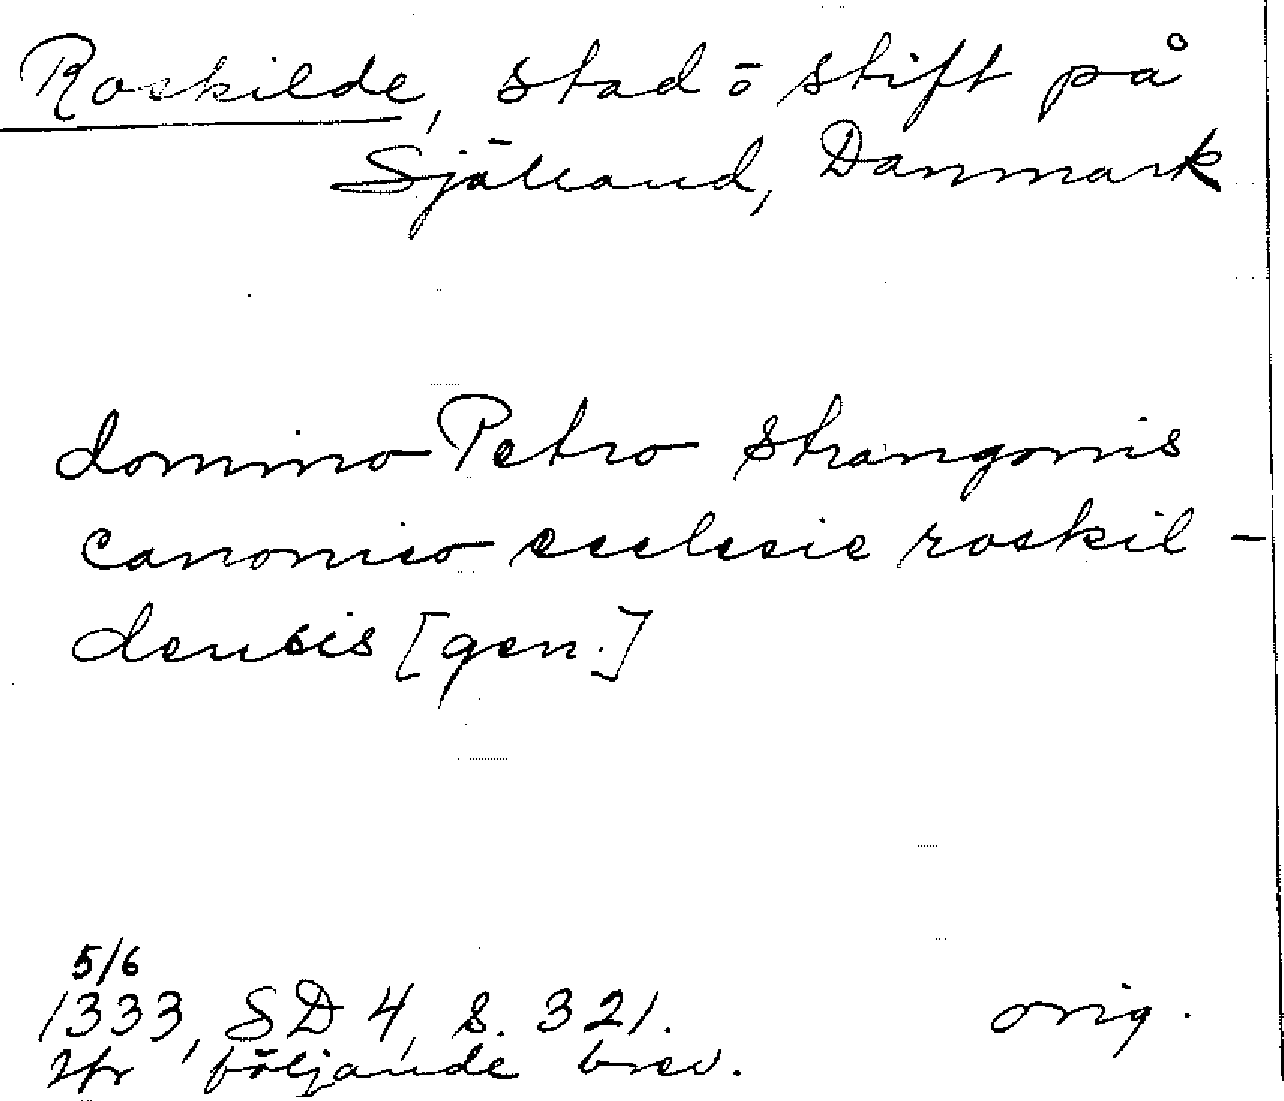 Roskilde, stad o stift på
Själland, Danmark
domino Petro strangonis
canonico ecclesie roskil-
densis [gen.]
5/6
1333, SD 4, s. 321. orig.
Jfr följande brev.